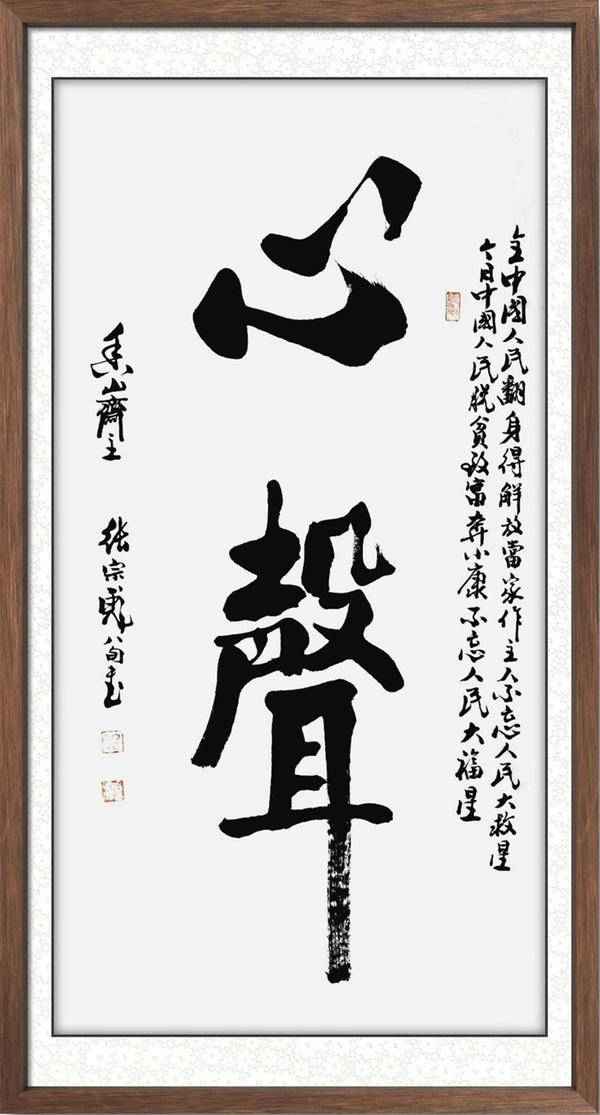 全中國人民翻身得解放當家作主人不忘人民大救星
今日中國人民脱貧致富奔小康不忘人民大福星
心聲
山齋主
張宗 八旬书